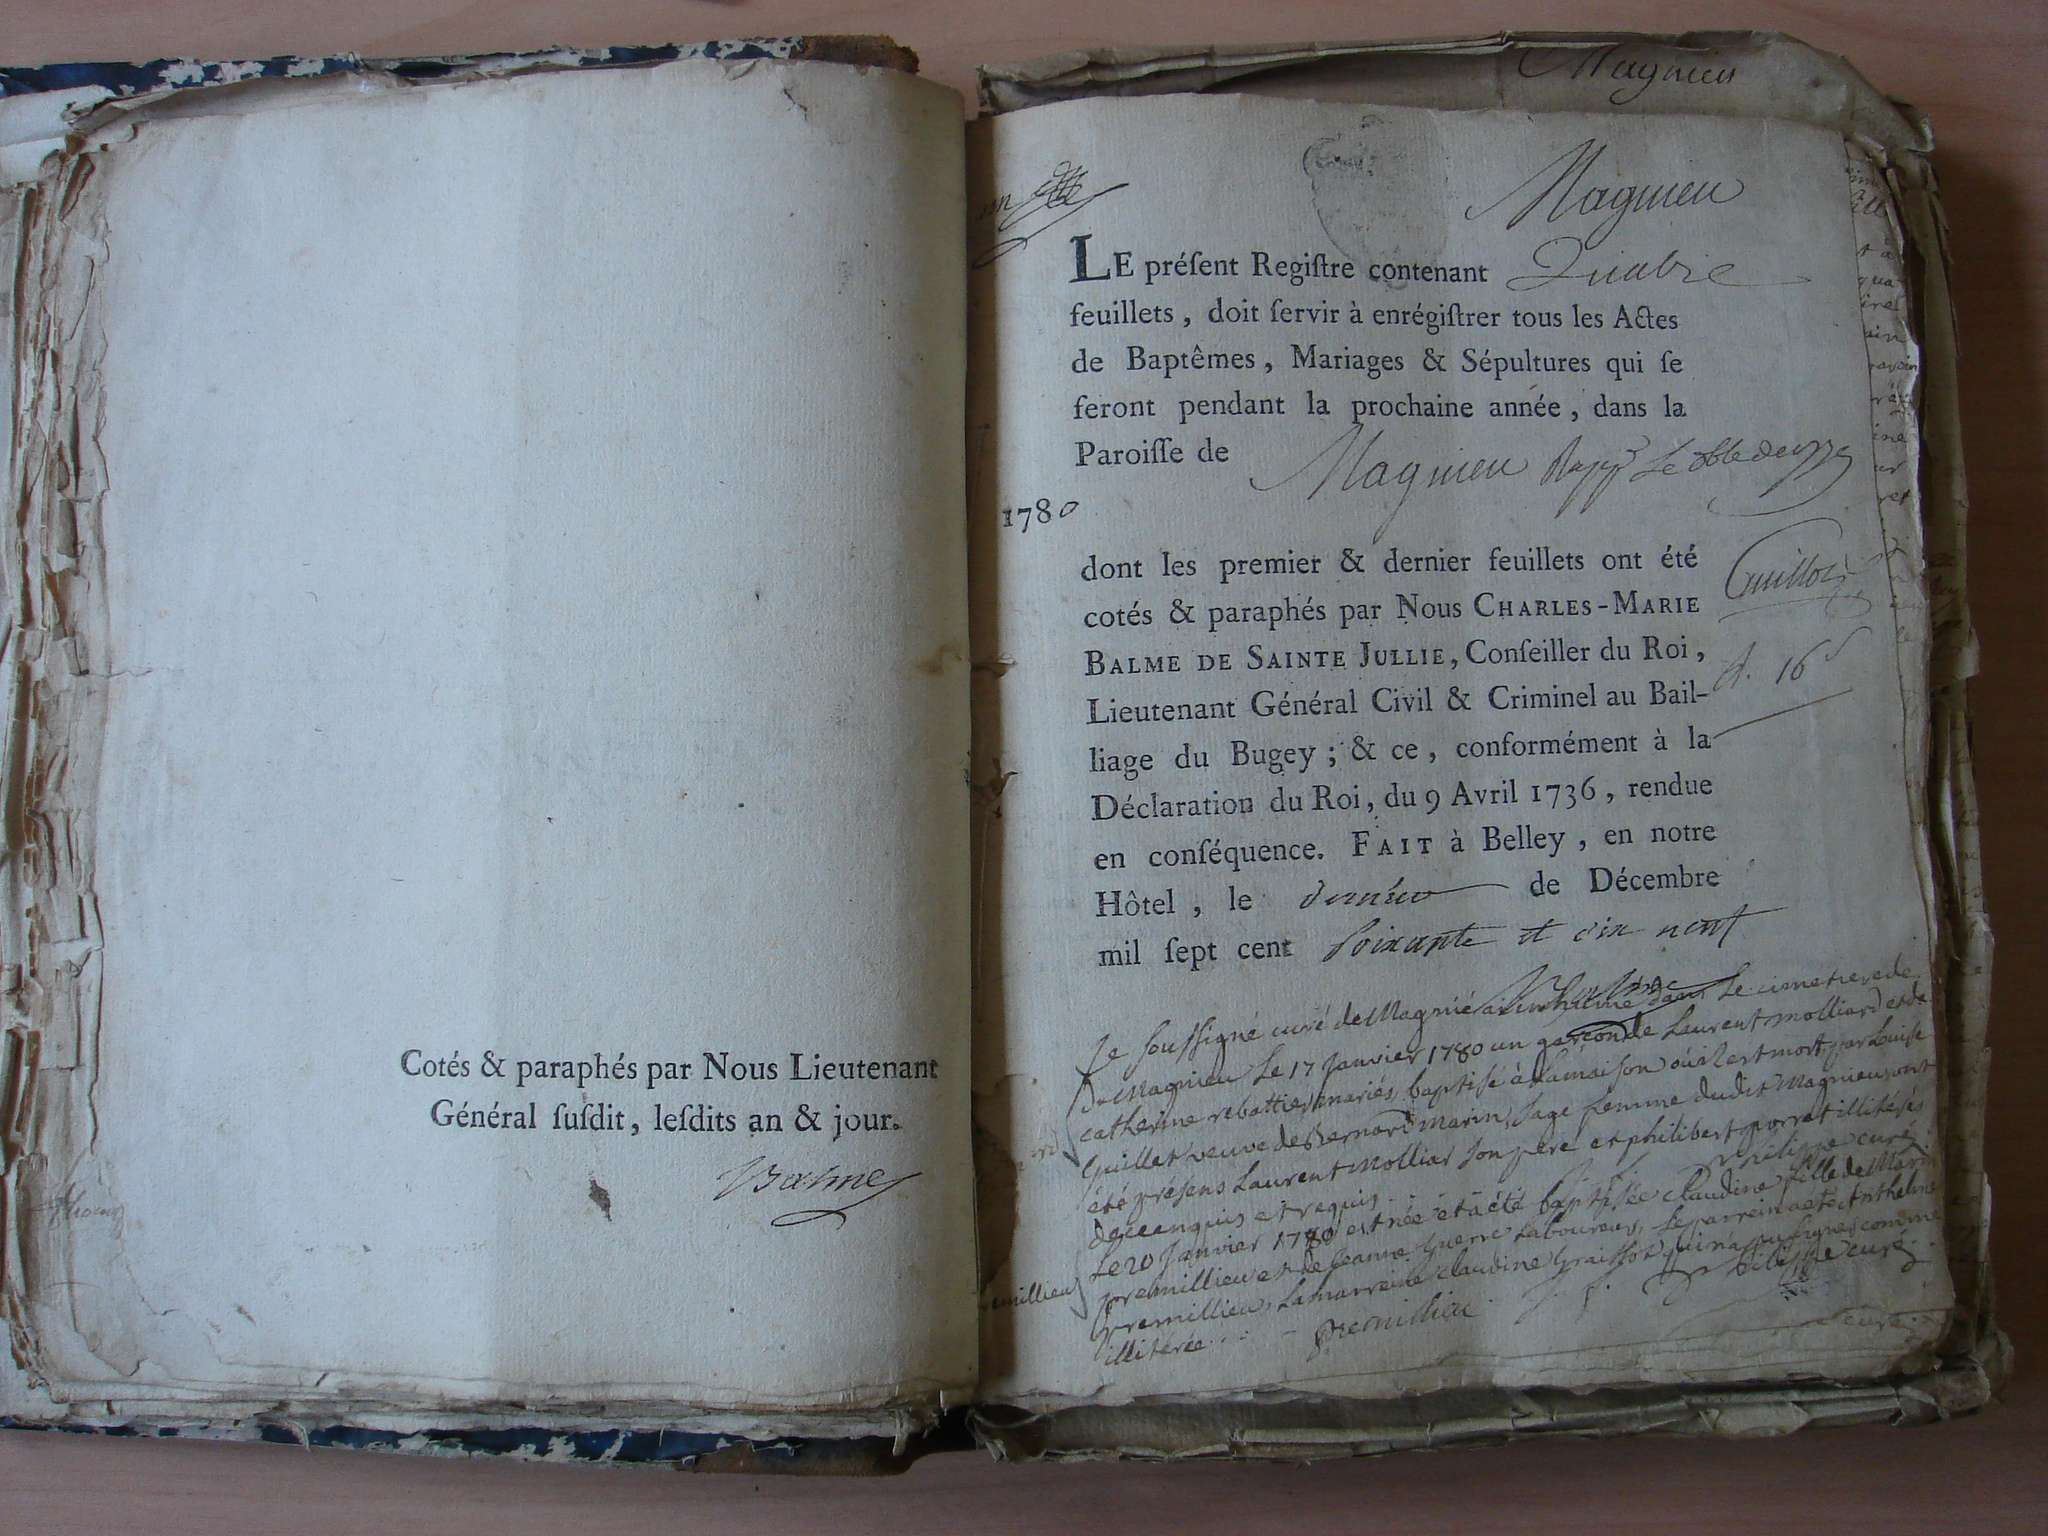 Cotés & paraphés par Nous Lieutenant
Général ſuſdit, leſdits an & jour.
Balme
Magnieu
Magnieu
LE préſent Regiſtre contenant Quatre
feuillets, doit ſervir à enrégiſtrer tous les Actes
de Baptêmes, Mariages & Sépultures qui ſe
feront pendant la prochaine année, dans la
Paroiſſe de Magnieu
1780
dont les premier & dernier feuillets ont été
cotés & paraphés par Nous CHARLES-MARIE
BALME DE SAINTE JULLIE, Conſeiller du Roi,
Lieutenant Général Civil & Criminel au Bail-
liage du Bugey; & ce, conformément à la
Déclaration du Roi, du 9 Avril 1736, rendue
en conſéquence. FAIT à Belley, en notre
Hôtel, le dernier de Décembre
mil ſept cent Soixante et dix neuf
Je Soussigné curé de Magnié ai inhumé dans Le cimetiere de
Magnieu Le 17 Janvier 1780 un garcon de Laurent Molliard et de
catherine rebattier mariés, baptisé à La maison où il est mort par Louise
Guillet veuve de Bernard Marin, Sage femme dudit Magnieu ont
été présens Laurent Molliar Son pere et philibert porret illitérés
de ce enquis et requis philippe curé
Le 20 Janvier 1780 est née et a été baptisée claudine fille de Marin
premillieu et de Jeanne Guerre Laboureurs, Le parrein a été Anthelme
premillieu, La marreine claudine qui n'a Su Signer comme
illiterée premillieu philippe curé